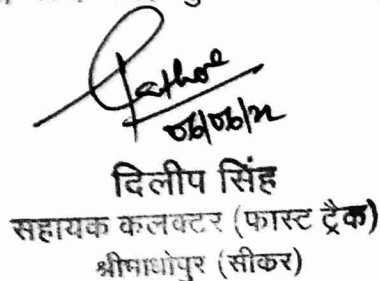 Rathore
06/06/22
दिलीप सिंह
सहायक कलक्टर (फास्ट ट्रैक)
श्रीमाधोपुर (सीकर)